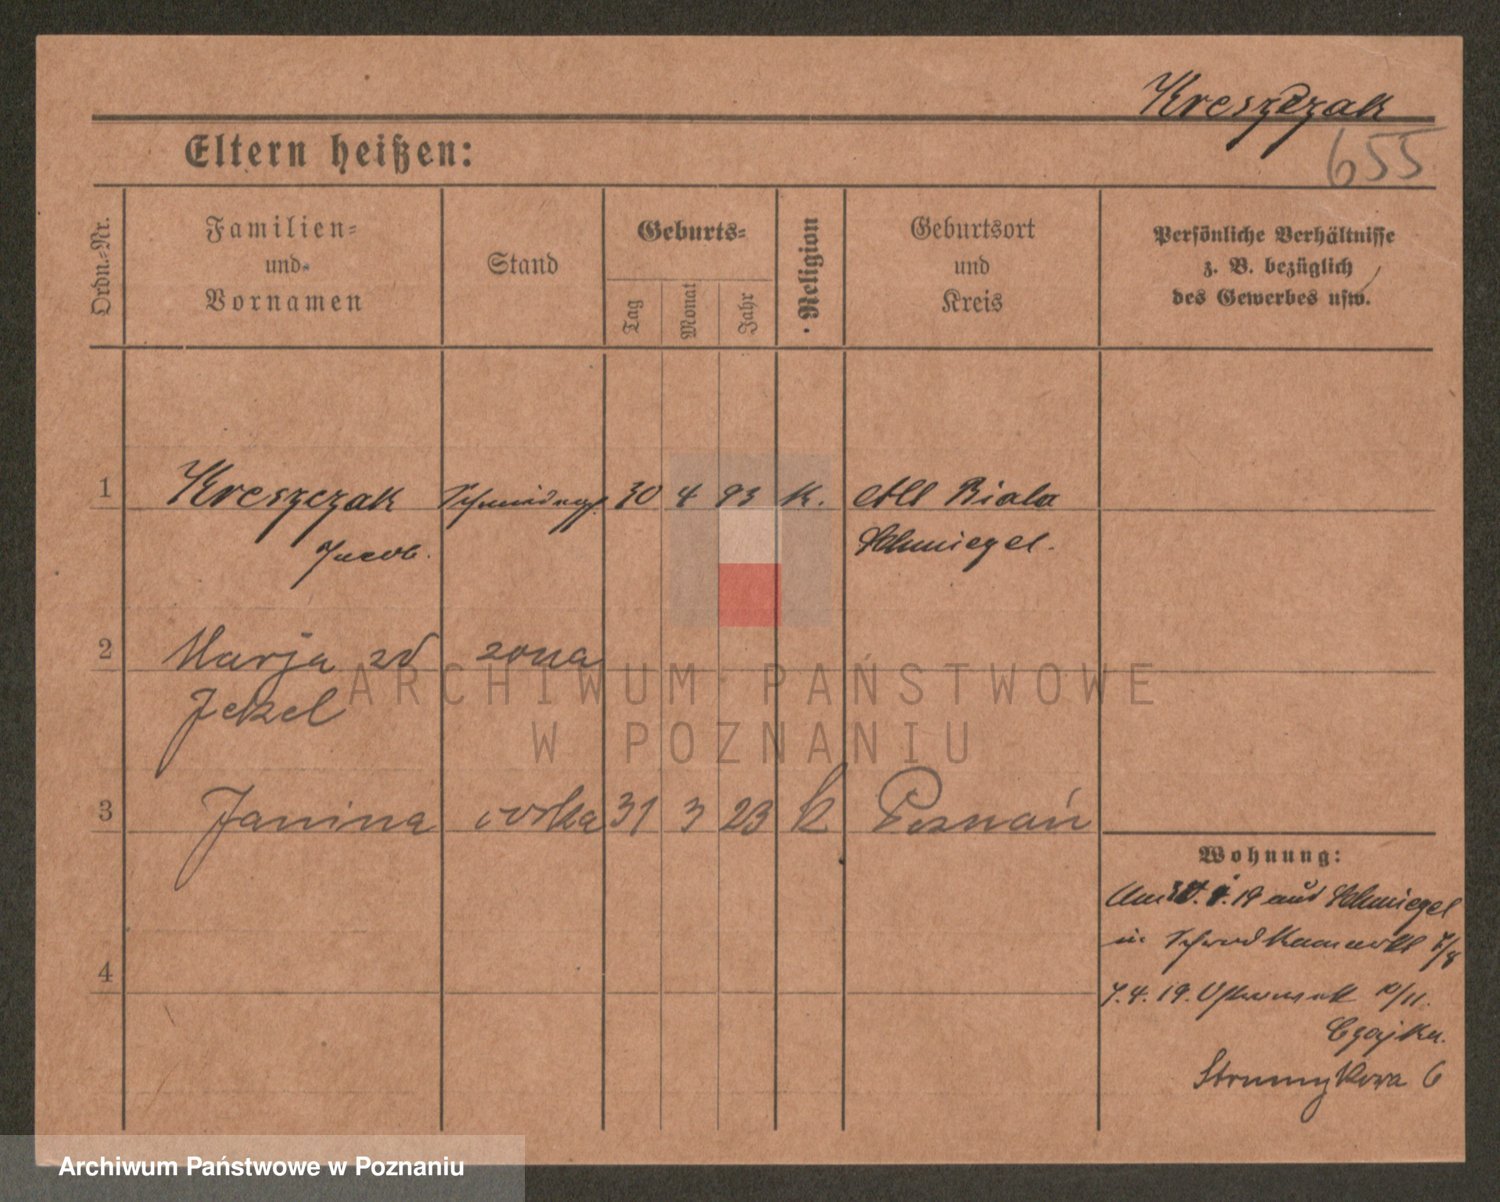 Kreszczak
655
Eltern heißen:
Ordn.-Nr.
Familien-
und
Vornamen
Stand
Geburts-
Tag
Monat
Jahr
Religion
Geburtsort
und
Kreis
Persönliche Verhältnisse
z. B. bezüglich
des Gewerbes usw.
1 Kreszczak 30 4 93 K. Alt Biala
Jacob. Schmiegel.
2 Marja zd zona
Jekel
3 Janina córka 31 3 23 k Poznań
Wohnung:
Am 19 aus Schmiegel
in 7/8
7.4.19. 10/11.
Czajka.
Strumykowa 6
4
ARCHIWUM PAŃSTWOWE
W POZNANIU
Archiwum Państwowe w Poznaniu